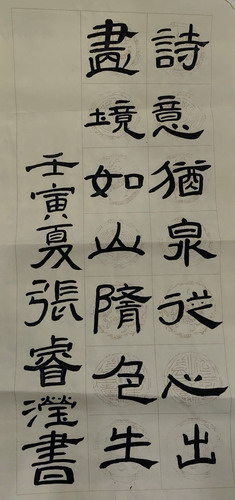 詩意猶泉從心出
畫境如山隋色生
壬寅夏張睿瀅書